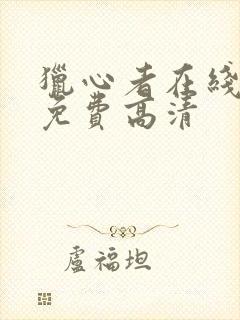 獵心者在綫
免費高清
盧福坦